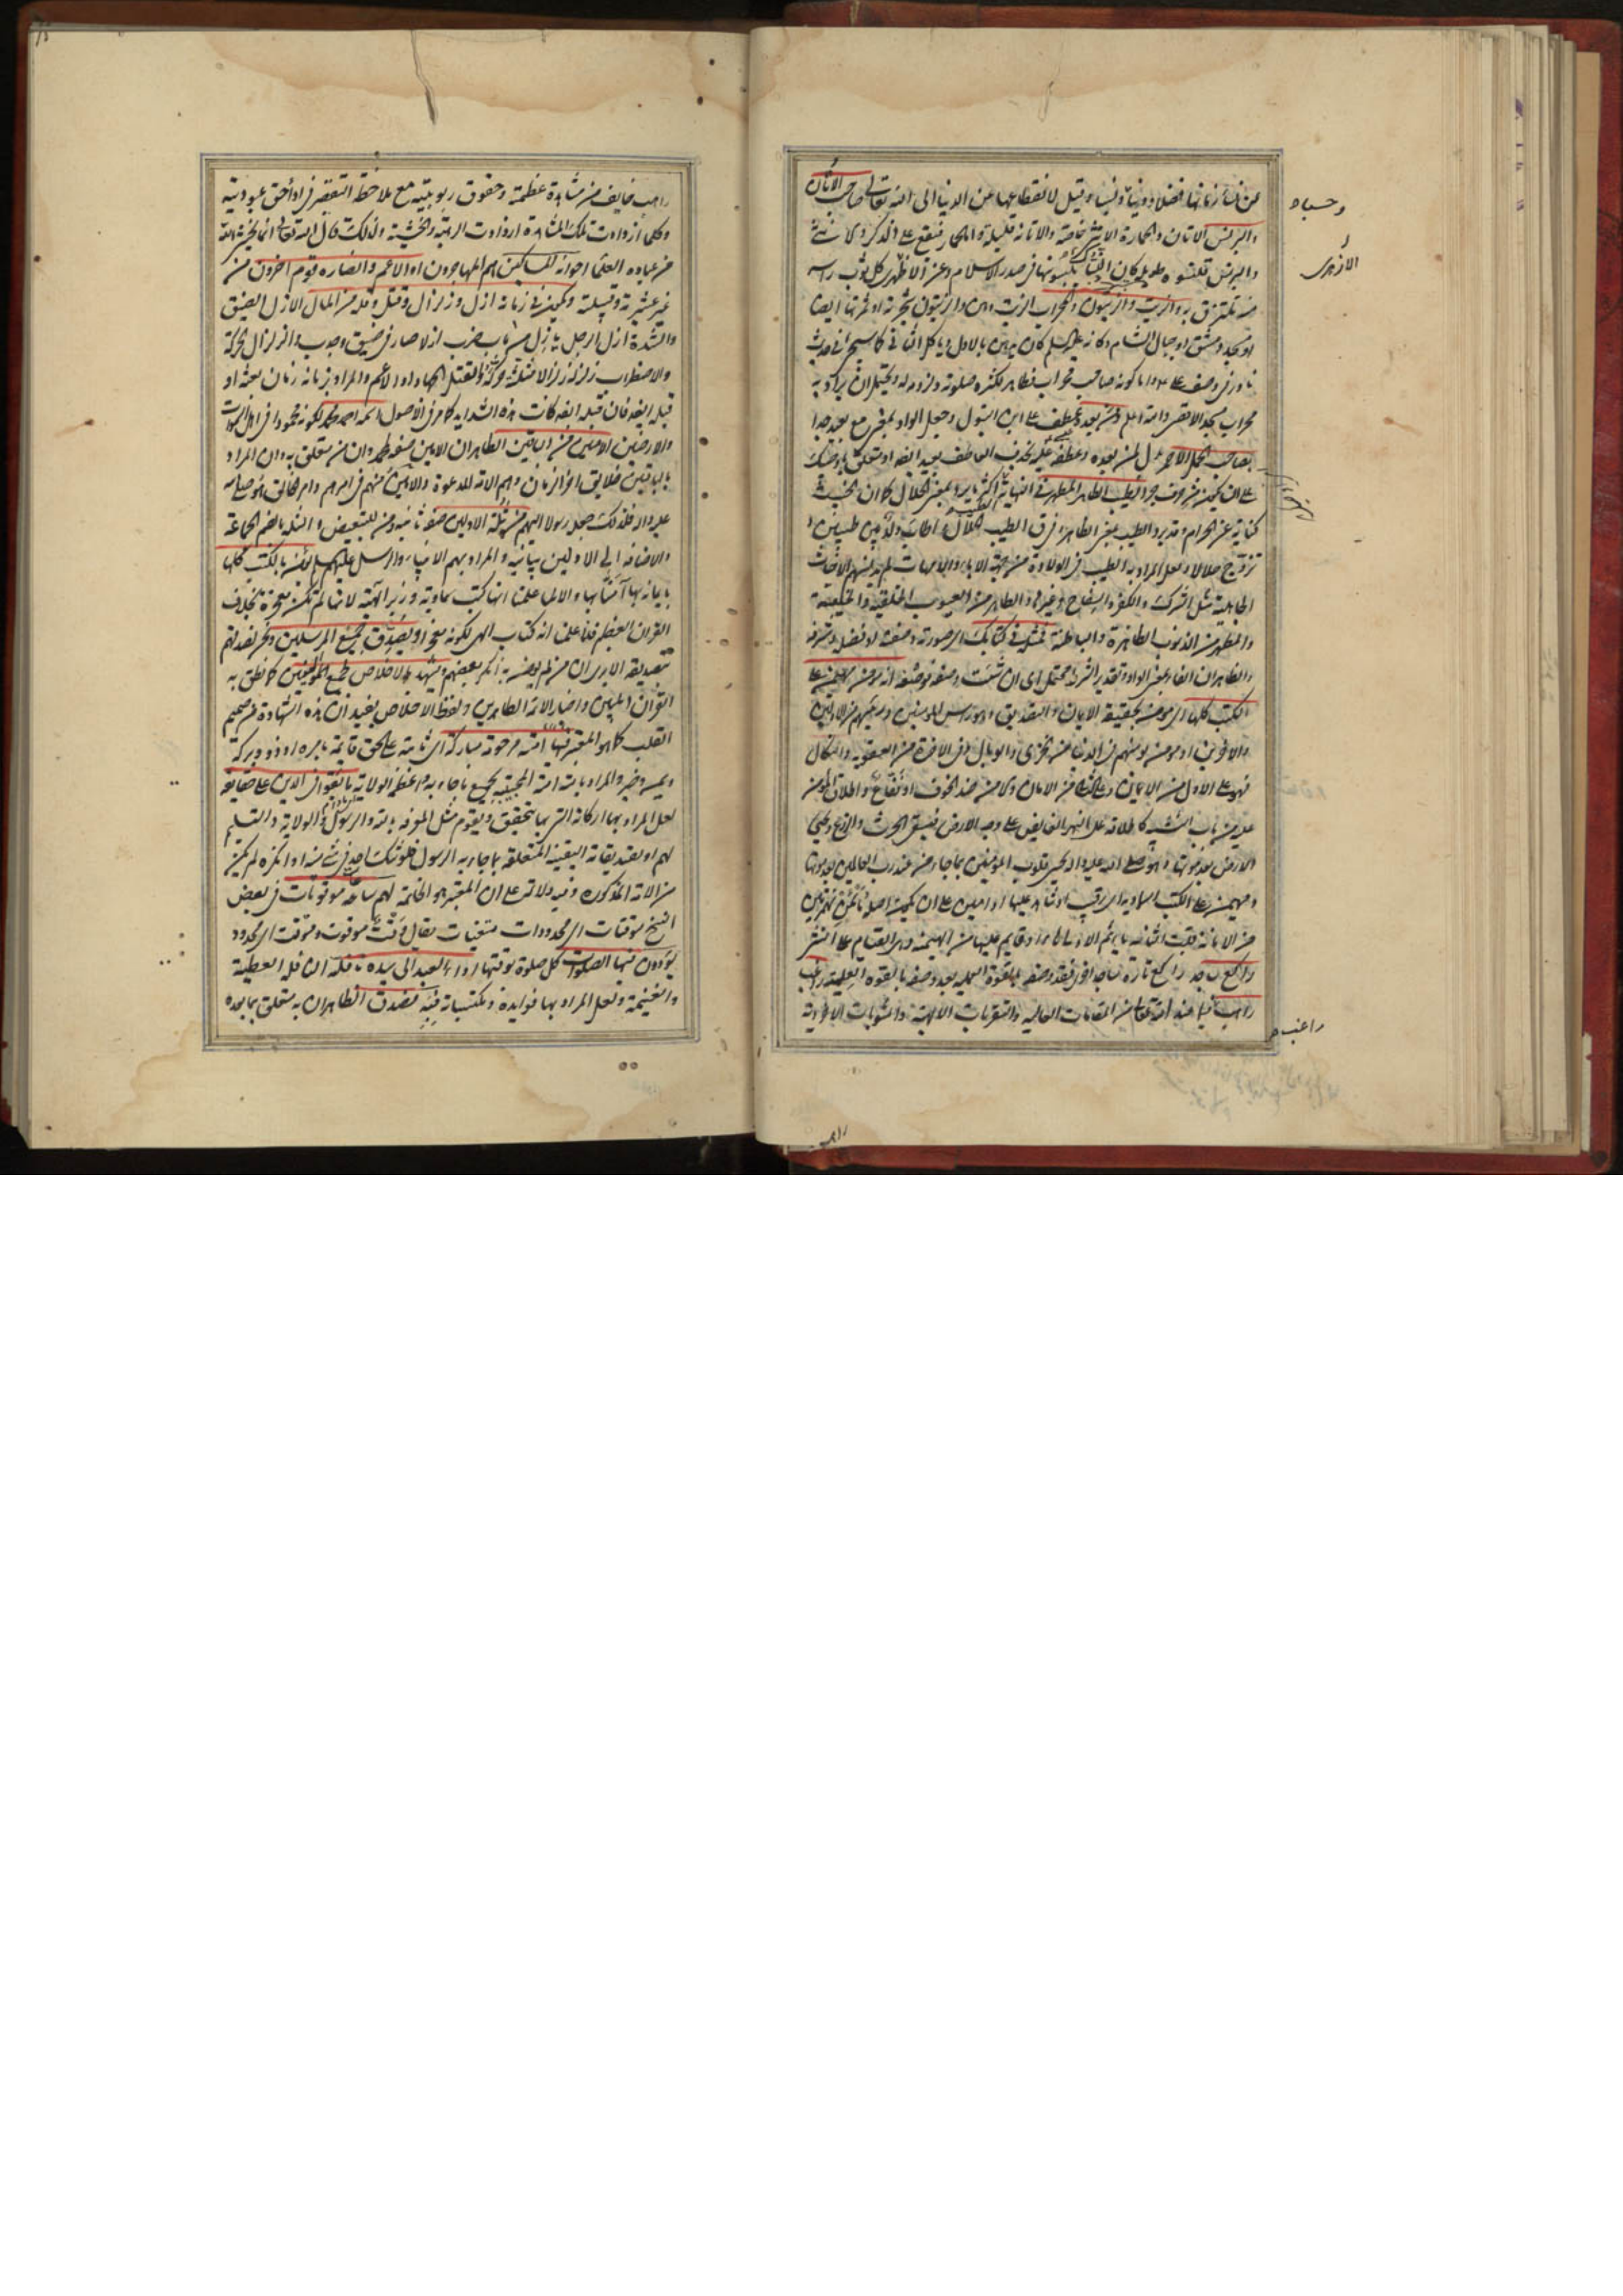 عن نساء زمانها فضلا و دينا و نسبا و قيل لانقطاعها عن الدنيا الى الله تعالى صاحب الأتان
والبرنس الاتان والحمارة الانثى خاصة والاتانه قليلة والحمار يقع على الذكر والانثى
والبرنس قلنسوة طويلة كان النساك يلبسونها في صدر الاسلام وعن الازهري كل ثوب راسه
منه ملتزق به والزيت والزيتون والمحراب الزيت دهن والزيتون شجرته او ثمرتها ايضا
او مسجد دمشق او جبال الشام وكانه عليه السلم كان يدهن بالاول وياكل الثاني كما سيجئ في حديث
نادر في وصف على واما كونه صاحب محراب فظاهر لكثرة صلوته ولزومه له ويحتمل ان يراد به
محراب مسجد الاقصى والله اعلم ومن بعده عطف على ابن البتول وجعل الواو بمعنى مع بعيد جدا
بصاحب الجمل الاحمر بدل لمن بعده وعطفه عليه بحذف العاطف بعيد ايضا او متعلق باوصيك
على ان يكون من حروف الجر الطيب الطاهر المطهر في النهاية الطيب اكثر ما يرد بمعنى الحلال كما ان الخبيث
كناية عن الحرام وقد يرد الطيب بمعنى الطاهر وفرق الطيب الحلال واطاب ولد بنين طيبين و
تزوج حلالا ولعل المراد به الطيب في الولادة من جهة الاباء والامهات لم يدنسهم الاخباث
الجاهلية مثل الشرك والكفر والسفاح وغيرها والطاهر من العيوب الخلقية والخلقية
والمطهر من الذنوب الظاهرة والباطنة فمثله في كتابك اي صورته وصفته او فضله وشرفه
والظاهر ان الفاء بمعنى الواو وتقدير الشرط محتمل اي ان شئت وصفه فوصفه انه مؤمن مهيمن على
الكتب كلها اي مؤمن بحقيقة الايمان والتصديق وهو رأس المؤمنين وسيدهم من الاولين
والاخرين او مؤمن يؤمنهم في الدنيا من الخزي والوبال وفي الاخرة من العقوبة والنكال
فهو على الاول من الايمان وعلى الثاني من الامان والامن ضد الخوف او نفاع واطلاق المؤمن
عليه من باب التشبيه كاطلاقه على النهر الفايض على وجه الارض فيسقى الحرث والزرع ويحيي
الارض بعد موتها وهو صلى الله عليه واله يحيي قلوب المؤمنين بما جاء من عند رب العالمين بعد موتها
ومهيمن على الكتب السماوية اي رقيب او شاهد عليها او امين على ان يكون اصله مأءمن بهمزتين
من الامانة قلبت الثانية ياء ثم الاولى هاء او قايم عليها من الهيمنة وهي القيام على الشئ
راكع ساجد راكع تارة ساجد اخرى فقد وصفه بالقوة العملية بعد وصفه بالقوة العلمية راغب
راهب فيما عند الله تعالى من المقامات العالية والتقربات الالهية والمثوبات الاخروية
وحسبا ه
الازهرى
راغب ه
راهب
راهب خايف من مشاهدة عظمته وحقوق ربوبيته مع ملاحظة التقصير في اداء حق عبوديته
وكلما ازدادت تلك المشاهدة ازدادت الرهبة والخشية ولذلك قال الله تعالى انما يخشى الله
من عباده العلما اخوانه المساكين هم المهاجرون او الاعم وانصاره قوم اخرون من
غير عشيرته وقبيلته ويكون في زمانه ازل وزلزال وقتل وقلة من المال الازل الضيق
والشدة ازل الرجل يأزل من باب ضرب ازلا صار في ضيق وجدب والزلزال الحركة
والاضطراب زلزله زلزالا مثلثة حركه والقتل الجهاد او الاعم والمراد بزمانه زمان بعثه او
قبله ايضا فان قبله ايضا كانت هذه الشدايد كما مر في الاصول اسمه احمد ومحمد لكونه محمودا في اهل السموات
والارضين الامين من الباقين الظاهر ان الامين صفة لمحمد وان من متعلق به وان المراد
بالباقين خلايق اخر الزمان وهم الامة للدعوة والامين منهم في امرهم وامر خالقهم هو صلى الله
عليه واله فلذلك جعل رسولا اليهم من ثلة الاولين صفة ثانية ومن للتبعيض والثلة بالضم الجماعة
والاضافة الى الاولين بيانية والمراد بهم الانبياء والرسل عليهم السلم يؤمن بالكتب كلها
بايمانه بها آمنا بها والا لما علمنا انها كتب سماوية وزبر الهية لانها لم تكن معجزة بخلاف
القران العظيم فانا علمنا انه كتاب الهى لكونه معجزا ويصدق جميع المرسلين ونحن نصدقهم
بتصديقه الا يرى ان من لم يؤمن به انكر بعضهم ويشهد بالاخلاص لجميع النبيين كما نطق به
القران المبين واخبار الائمة الطاهرين ولفظ الاخلاص يفيد ان هذه الشهادة من صميم
القلب كما هو المعتبر فيها امته مرحومة مباركة اي ثابتة على الحق قايمة بامره او ذو وبركة
ويمن وخير والمراد بامته امة المجيبة بجميع ما جاء به واعظمه الولاية ما بقوا في الدين على حقايقه
لعل المراد بها اركانه التي بها يتحقق ويقوم مثل المعرفة بالله والرسول والولاية والتسليم
لهم او تصديقاته اليقينية المتعلقة بما جاء به الرسول فلو شك احد في شئ منه او انكره لم يكن
من الامة المذكورة وفيه دلالة على ان المعتبر هو الخاتمة لهم ساعات موقوتات في بعض
النسخ موقتات اي محدودات متعينات يقال وقت موقوت وموقت اي محدود
يؤدون فيها الصلوات كل صلوة بوقتها اداء العبد الى سيده نافلته النافلة العطية
والغنيمة ولعل المراد بها فوايده ومكتسباته فبه تصدق الظاهر ان به متعلق بما بعده